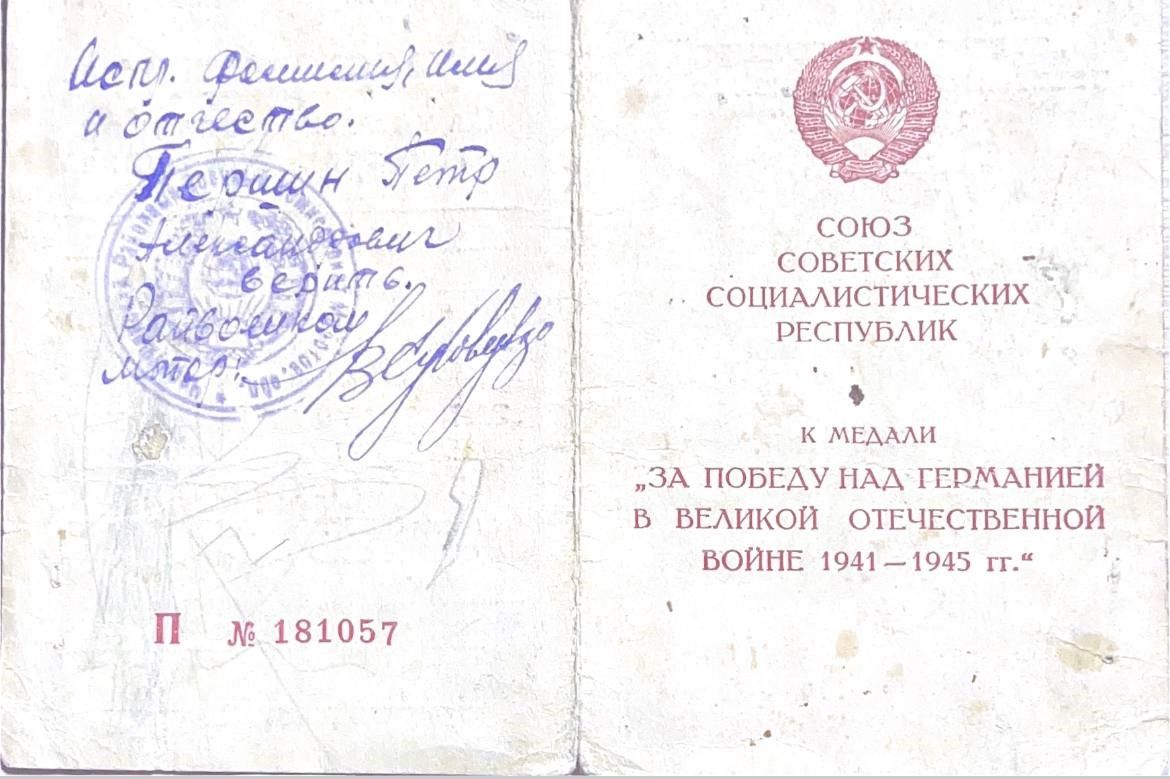 Испр. фамилия, имя
и отчество.
Першин Петр
Александрович
верить.
Райвоенком
майор:
П № 181057
СОЮЗ
СОВЕТСКИХ
СОЦИАЛИСТИЧЕСКИХ
РЕСПУБЛИК
К МЕДАЛИ
„ЗА ПОБЕДУ НАД ГЕРМАНИЕЙ
В ВЕЛИКОЙ ОТЕЧЕСТВЕННОЙ
ВОЙНЕ 1941—1945 гг.“